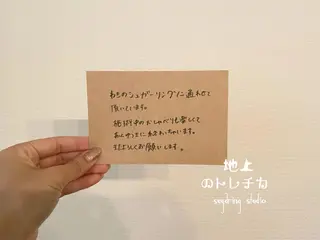 わきのシュガーリングに通わせて
頂いています。
施術中のおしゃべりも楽しくて
あしゅうまに終わっちゃいます。
またよろしくお願いします。
地上
のトレチカ
sugaring studio